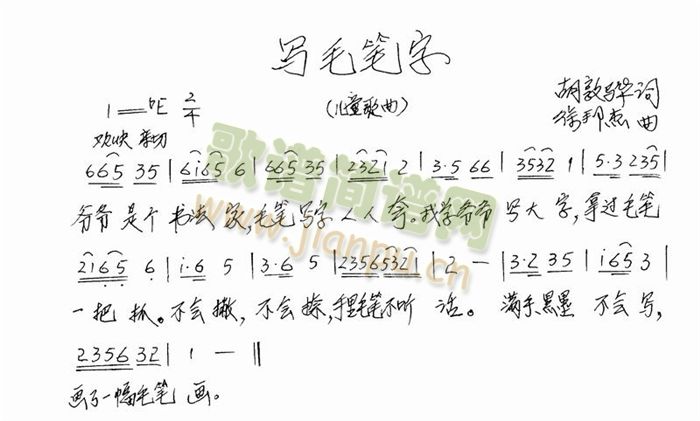 写毛笔字
1=♭E 2/4
(儿童歌曲)
胡敦骅词
徐邦杰曲
欢快 亲切
665 35 | 6i65 6 | 665 35 | 2321 2 | 3·5 66 | 3532 1 | 5·3 235 |
爷爷是个书法家,毛笔写字人人夸。我学爷爷写大字,拿过毛笔
2165 6 | i·6 5 | 3·6 5 | 23565321 | 2 — | 3·2 35 | i65 3 |
一把抓。不会撇,不会捺,手里毛笔不听话。满手黑墨不会写,
2356 32 | 1 — ‖
画了一幅毛笔画。
歌谱简谱网
www.jianpu.cn